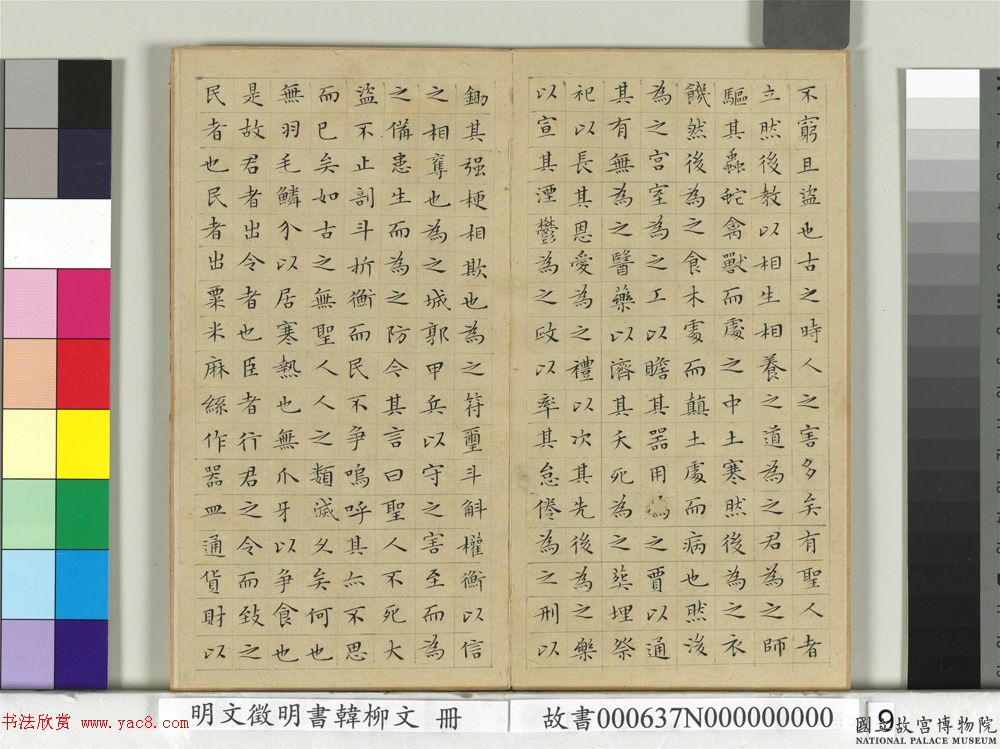 不窮且盜也古之時人之害多矣有聖人者
立然後教以相生相養之道為之君為之師
驅其蟲蛇禽獸而處之中土寒然後為之衣
饑然後為之食木處而顛土處而病也然後
為之宮室為之工以贍其器用為之賈以通
其有無為之醫藥以濟其夭死為之葬埋祭
祀以長其恩愛為之禮以次其先後為之樂
以宣其湮鬱為之政以率其怠倦為之刑以
鋤其强梗相欺也為之符璽斗斛權衡以信
之相奪也為之城郭甲兵以守之害至而為
之備患生而為之防今其言曰聖人不死大
盜不止剖斗折衡而民不爭嗚呼其亦不思
而已矣如古之無聖人人之類滅久矣何也
無羽毛鱗介以居寒熱也無爪牙以爭食也
是故君者出令者也臣者行君之令而致之
民者也民者出粟米麻絲作器皿通貨財以
明文徵明書韓柳文 冊
故書000637N000000000
9
书法欣赏 www.yac8.com
國立故宮博物院
NATIONAL PALACE MUSEUM